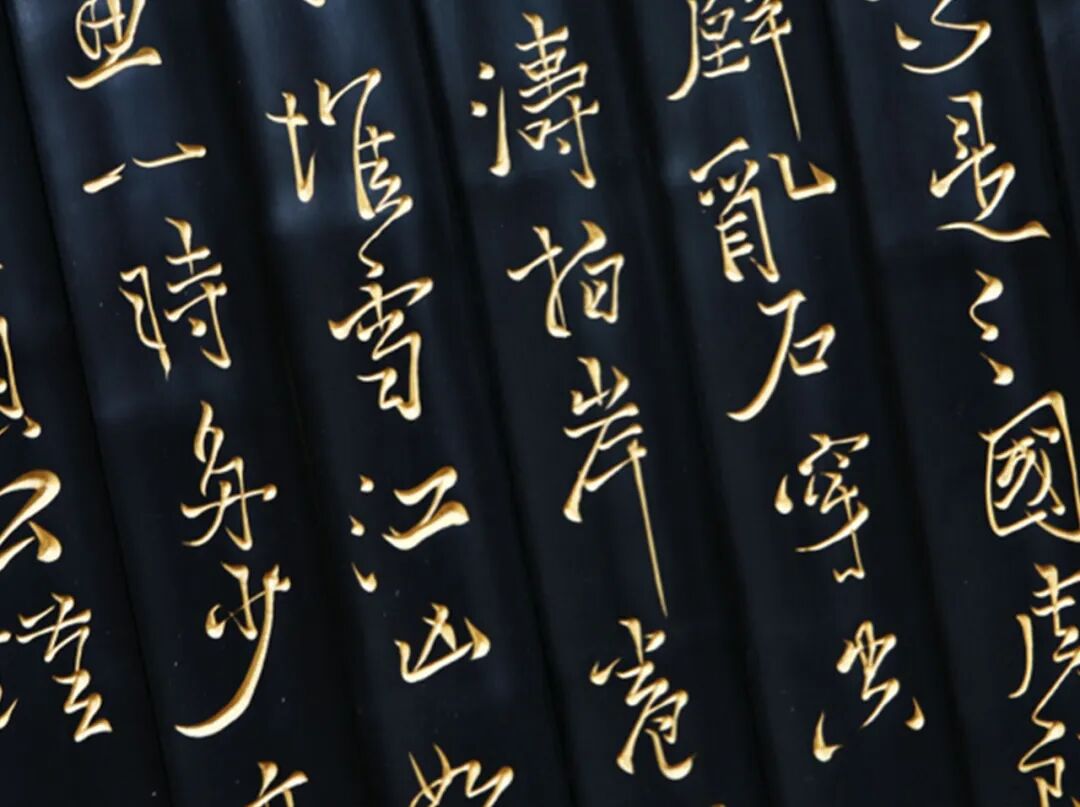 是三國周郎
壁亂石穿空
濤拍岸卷
堆雪江山如
畫一時多少
公瑾